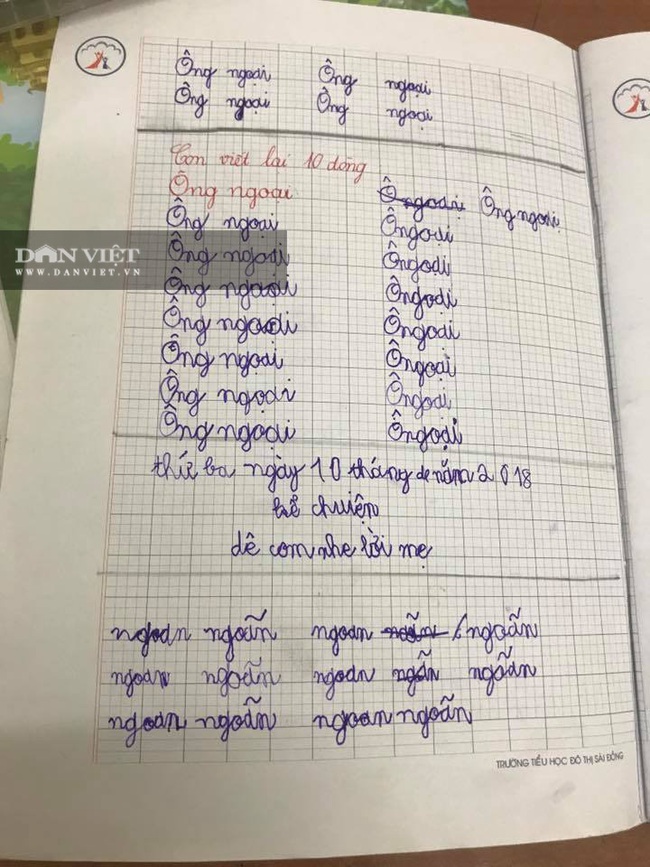 Ông ngoại Ông ngoại
Ông ngoại Ông ngoại
Con viết lại 10 dòng
Ông ngoại Ôngoại Ông ngoại
Ông ngoại Ôngoại
Ông ngoại Ôngoại
Ông ngoại Ôngoại
Ông ngoại Ôngoại
Ông ngoại Ôngoại
Ông ngoại Ôngoại
Ông ngoại Ôngoại
DÂN VIỆT
WWW.DANVIET.VN
thứ ba ngày 10 tháng năm 2018
kể chuiện
dê con nhe lời mẹ
ngoan ngoãn ngoan ngoãn ngoãn
ngoan ngoãn ngoan ngẫn ngoẫn
ngoan ngoãn ngoan ngoãn
TRƯỜNG TIỂU HỌC ĐÔ THỊ SÀI ĐỒNG